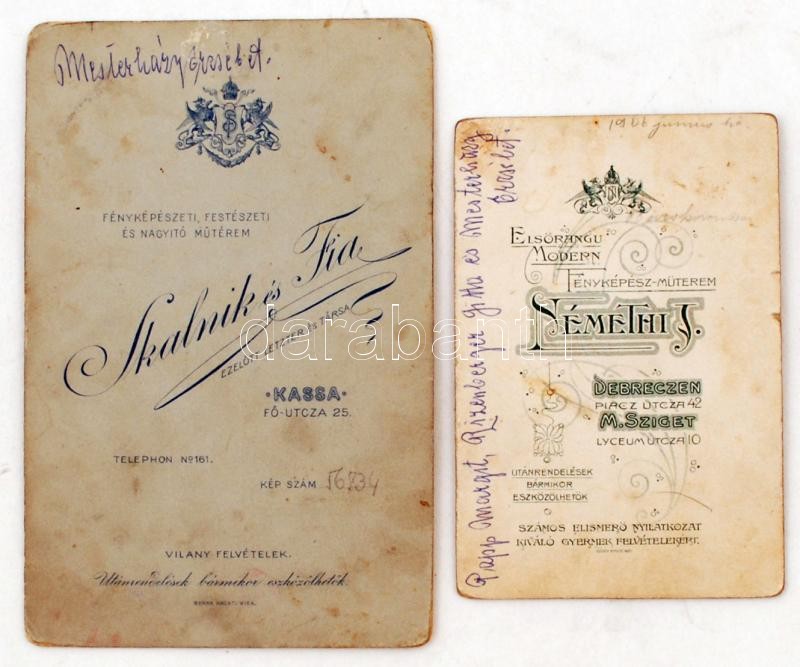 Mesterházy Erzsébet.
FÉNYKÉPÉSZETI, FESTÉSZETI
ÉS NAGYITÓ MŰTEREM
Skalnik és Fia
EZELŐTT LETZTER ÉS TÁRSA
KASSA
FŐ-UTCZA 25.
TELEPHON № 161.
KÉP SZÁM 56734
VILANY FELVÉTELEK.
Utánrendelések bármekor eszközölhetők.
darabanth.com
1906 junius hó
Papp Margit, Rizenberger Gitta és Mesterházy
Erzsébet.
ELSŐRANGU
MODERN
FÉNYKÉPÉSZ-MŰTEREM
NÉMETHI J.
DEBRECZEN
PIACZ UTCZA 42
M. SZIGET
LYCEUM UTCZA 10
UTÁNRENDELÉSEK
BÁRMIKOR
ESZKÖZÖLHETŐK
SZÁMOS ELISMERŐ NYILATKOZAT
KIVÁLÓ GYERMEK FELVÉTELEKÉRT.